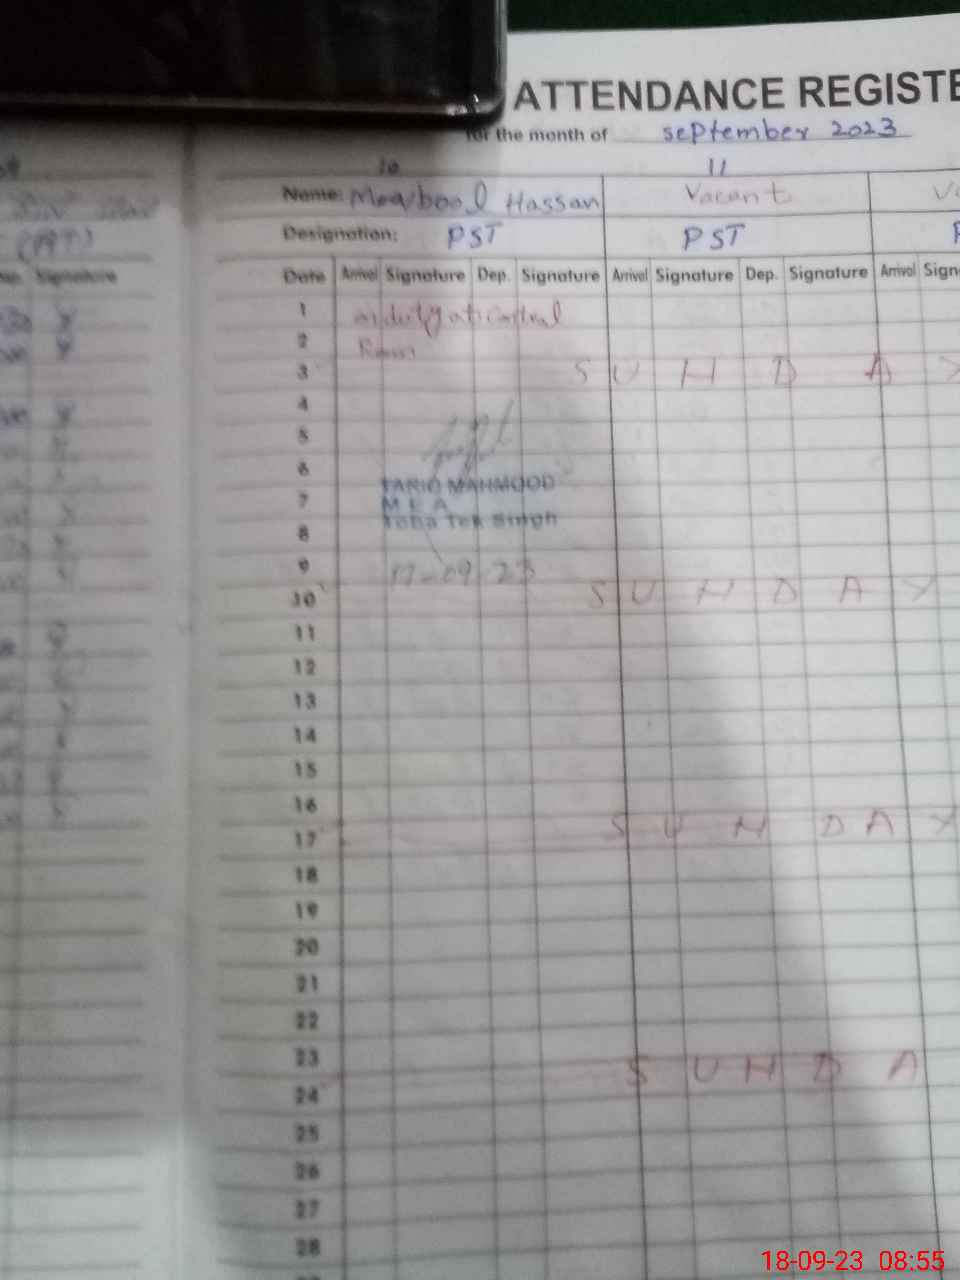 ATTENDANCE REGISTE
for the month of september 2023
10 11
Name: Maqbool Hassan Vacant
Designation: PST PST
Signature Date Arrival Signature Dep. Signature Arrival Signature Dep. Signature Arrival Sign
1 on duty at Control
2 Room
3 SUNDAY
4
5
6
TARIQ MAHMOOD
7 M E A
8 Toba Tek Singh
9 17-09-23
10 SUNDAY
11
12
13
14
15
16
17 SUNDAY
18
19
20
21
22
23
24 SUNDA
25
26
27
28
18-09-23 08:55